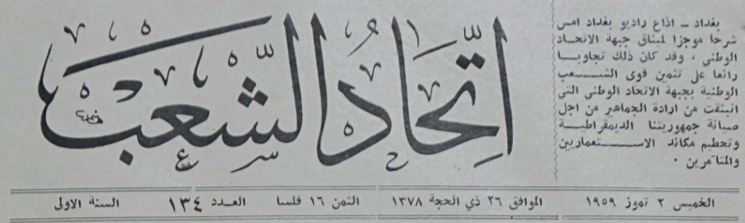 بغداد ـ اذاع راديو بغداد امس
شرحا موجزا لميثاق جبهة الاتحاد
الوطني ، وقد كان ذلك تجاوبا
رائعا على تثمين قوى الشعب
الوطنية بجبهة الاتحاد الوطني التي
انبثقت من ارادة الجماهير من اجل
صيانة جمهوريتنا الديمقراطية
وتحطيم مكائد الاستعماريين
والمتآمرين .
اتحاد الشعب
الخميس ٢ تموز ١٩٥٩ الموافق ٢٦ ذي الحجة ١٣٧٨ الثمن ١٦ فلسا العدد ١٣٤ السنة الاولى